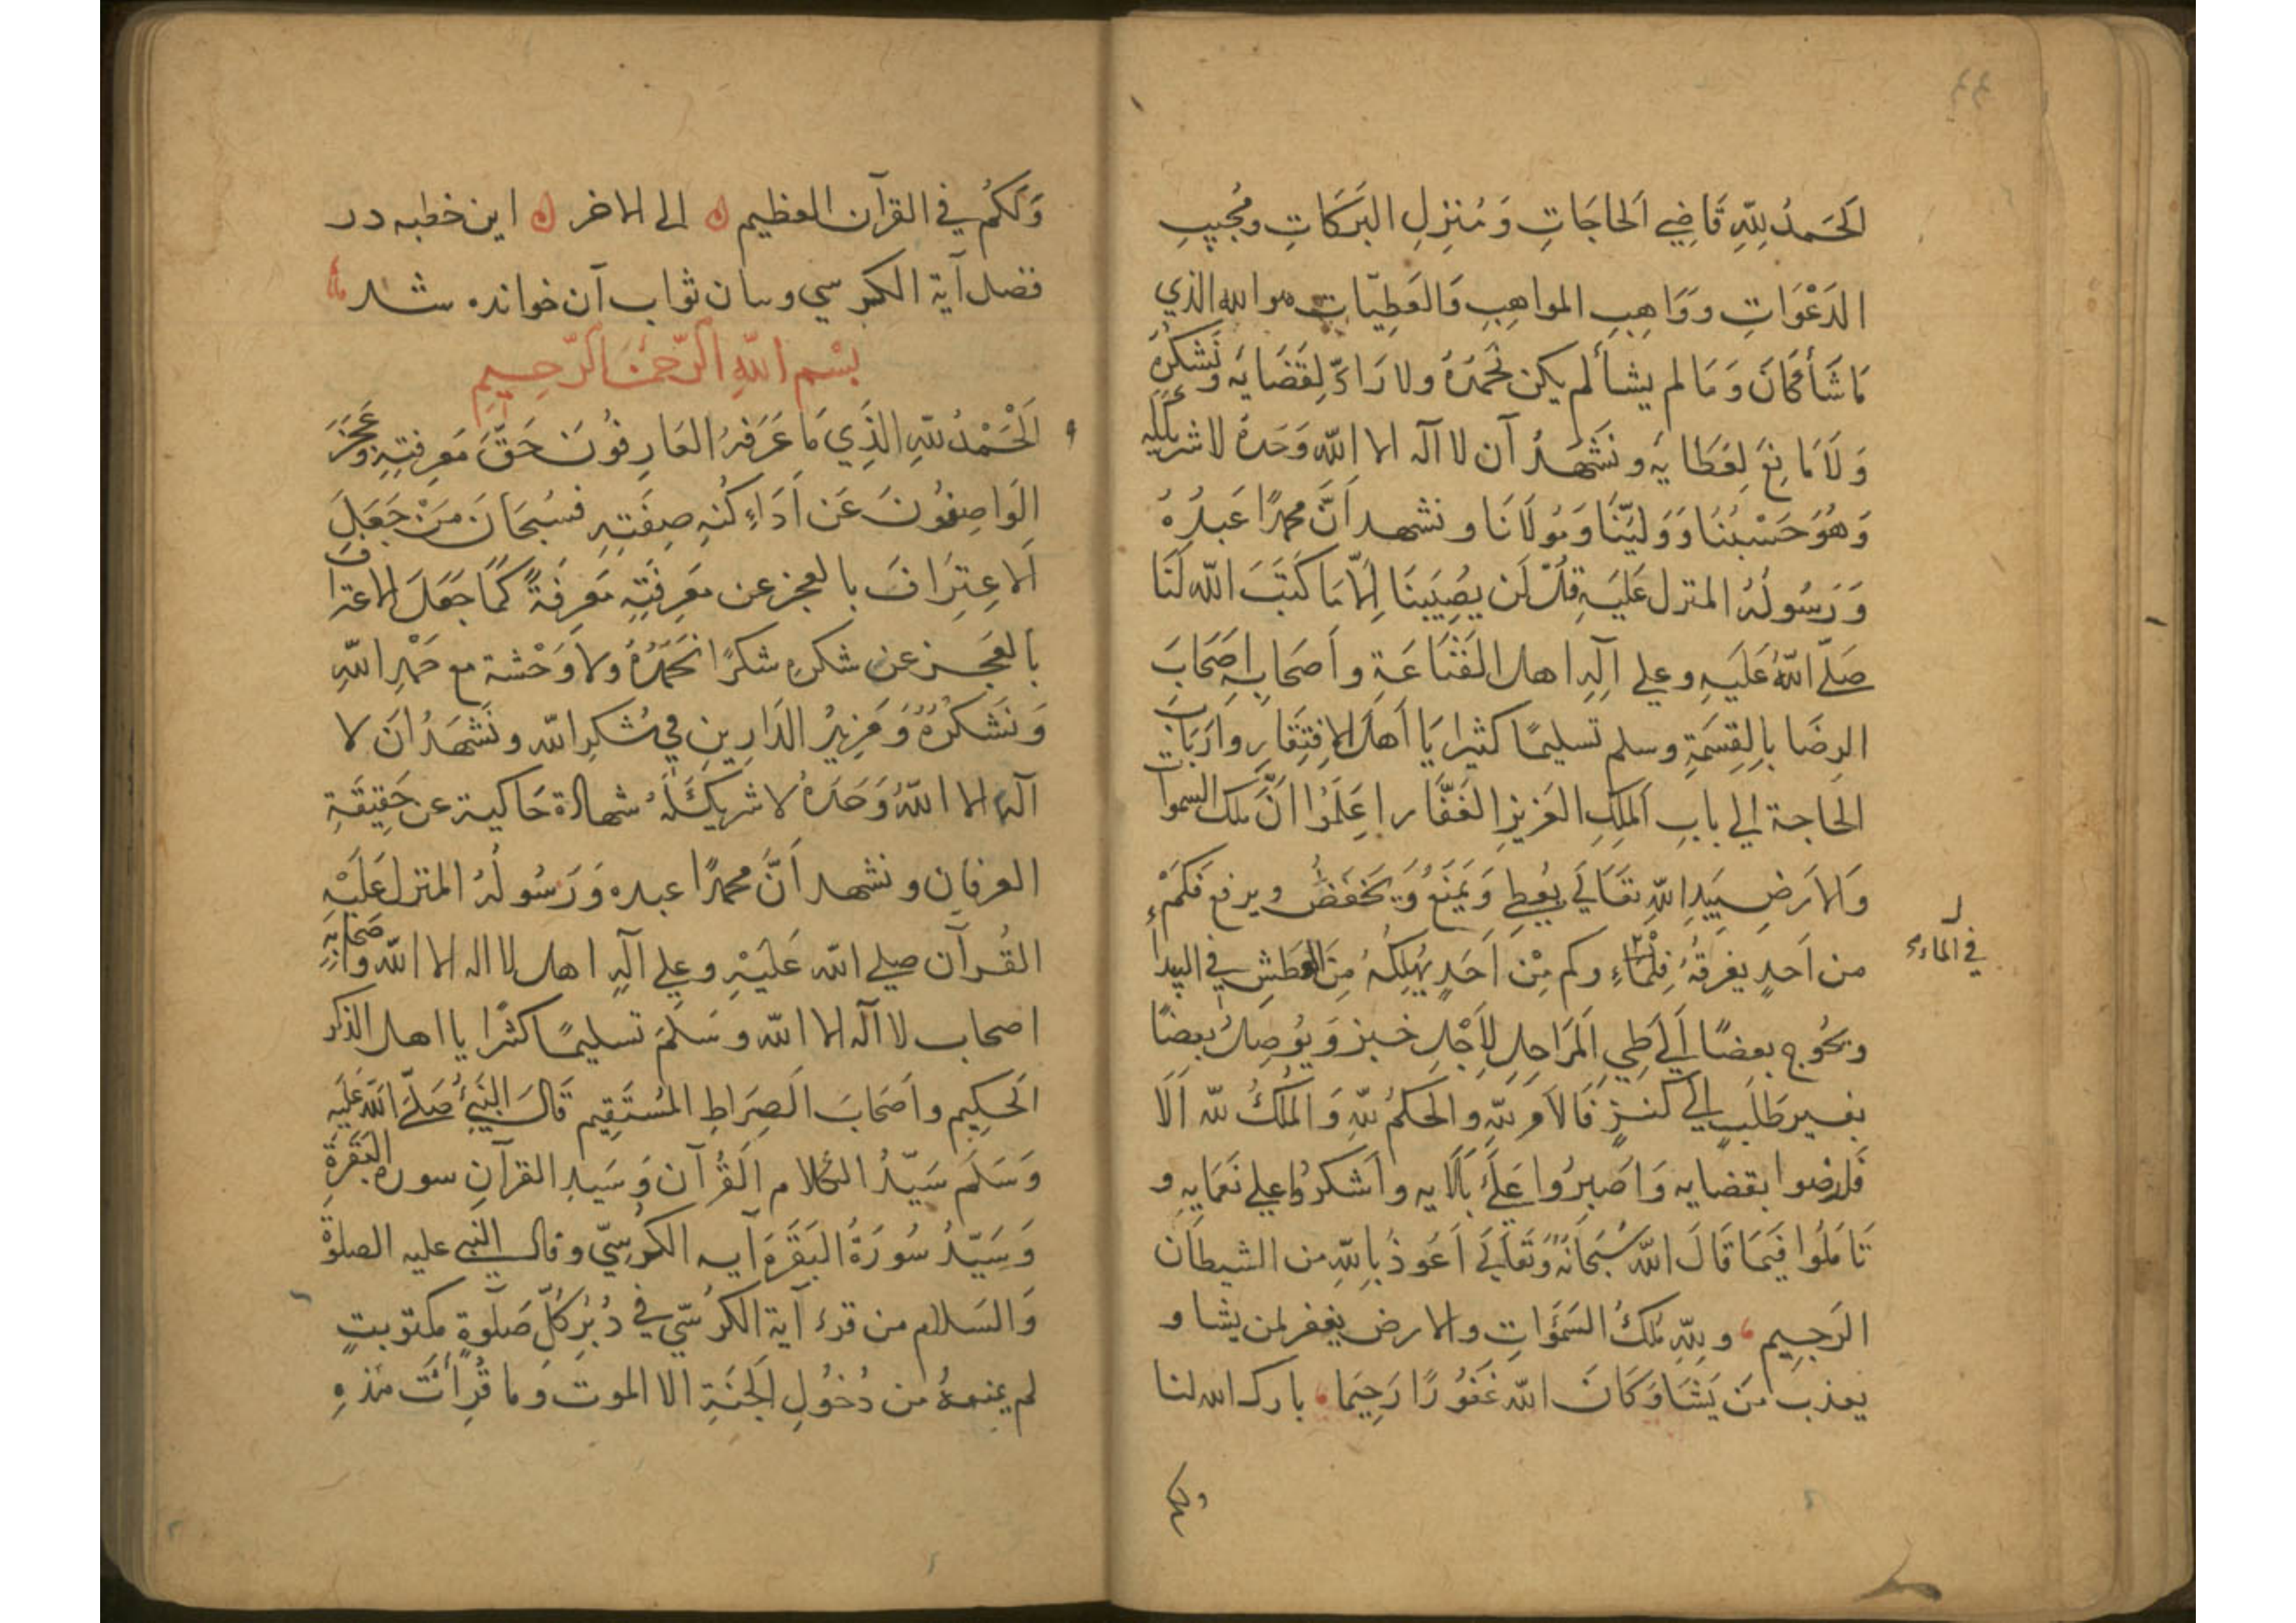 ٤٤
اَلحَمدُ لِلّٰهِ قَاضِي اَلحَاجَاتِ وَمُنزِلِ البَرَكَاتِ ومُجِيبِ
الدَعْوَاتِ ووَاهِبِ المواهِبِ وَالعَطِيّاتِ هو الله الذي
مَا شَأَ كَانَ وَمَا لم يشأ لم يكن نَحْمَدُهُ ولا رَادَّ لِقَضَايَه وَنَشكُرُهُ
وَلَا مَانِعَ لِعَطَايَه ونَشْهَدُ آن لا آله الا اللّٰه وَحَدهُ لا شريكَ لَه
وَهُوَ حَسْبُنَا وَوَليّنَا وَمَولَانَا ونشهد اَنَّ محمدًا عَبدُهُ
وَرَسُولُهُ المنزل عَلَيهِ قلْ لَن يصِيبَنَا اِلّا مَا كَتَبَ اللّٰه لَنَا
صَلّے اللّٰهُ عَلَيهِ وعلي آلِهِ اهل القَنَاعَةِ واَصَحَابِه اصَحَابَ
الرِضَا بِالقِسمَةِ وسلم تسليمًا كثيرا يَا اَهلَ الافتِقَارِ وَاَربَابَ
الحَاجة الي بابِ اَلملِكِ العَزيزِ الغَفّار اِعلَمُوا انَّ ملك السموات
وَالاَرضِ بِيَدِ اللّٰهِ تعَالَي يُعطِي وَيَمنَعُ وَيَخفَضُ ويرفع فَكَمْ
من اَحدٍ يغرقهُ فِلْمَاءِ وكم مِنْ اَحَدٍ يُهلِكُهُ مِنَ العَطشِ في البيداءِ
في الماء
ويحُوج بعضًا اِلَي طَي اَلمَرَاحِلِ لِاَجْلِ خبز وَيُوصِلُ بعضًا
بغير طَلَبٍ الي كنزٍ فَالاَمر لِلّٰهِ والحكمُ لِلّٰهِ وَالمُلكُ للّٰه اَلَا
فَارضوا بقضايه وَاَصبِرُوا عَلَي بَلَايِه واَشكرُوا علي نَعمَايِهِ و
تَامَلُوا فيمَا قَالَ اللّٰه سُبحَانَهُ وَتَعَالَي اَعوذُ بِاللّٰهِ من الشيطَان
الرَجِيم وللّٰهِ مُلكُ السَمَوَاتِ والارض يغفر لمن يشا و
يعذب مَن يَشَا وَكَانَ اللّٰه غَفُورًا رَحِيمَا بارك الله لنا
وَلَكُم في القرآن العظيم الي الاخر اين خطبه در
فضل آية الكرسي وبيان ثواب آن خوانده شد
بِسْمِ اللّٰهِ الرَّحمٰنِ الرَّحِيمِ
اَلْحَمْدُ لِلّٰهِ الذِّي مَا عَرَفهُ العَارِفُونَ حَقَّ مَعرِفتِهِ وعَجَزَ
الوَاصِفُونَ عَن اَدَاءِ كُنهِ صِفَتِهِ فسُبحَانَ مَنْ جَعَلَ
الاعِترَافَ بالعجز عن مَعرِفَتِهِ مَعرِفَةً كَمَا جَعَلَ الاعتراف
بالعَجز عن شكرهِ شكرًا نَحَمدُهُ ولا وَحْشة مع حَمْدِ اللّٰهِ
وَنَشكُرُهُ وَمَزِيدُ الدَارينِ في شُكرِ اللّٰه ونَشهَدُ اَن لا
آله الا اللّٰهُ وَحَدهُ لا شريكَ لَهُ شهادة حَاكية عن حَقِيقَةِ
العرفان ونشهد اَنَّ محمدًا عبده وَرَسُولُهُ المنزل عَلَيْه
القُرآن صلي اللّٰه عَلَيْهِ وعلي آلِهِ اهل لا اله الا اللّٰه واَصحَابِهِ
اصحاب لا آله الا اللّٰه وسَلَمَ تسليمًا كثرًا يا اهل الذكر
اَلحَكِيم واَصَحَابَ اَلصِرَاطِ المُستَقِيم قَالَ النَبِيُّ صَلّے اللّٰه عَلَيهِ
وَسَلَمَ سَيّدُ الكلام اَلقُرآن وَسَيدِ القرآنِ سوره البَقَرَةِ
وَسَيّدُ سُورَةُ البَقَرَة آيه الكُرسيّ وقال النبي عليه الصلوة
وَالسَلام من قرء آية الكرُسّي في دُبُرِ كُلِّ صَلوةٍ مكتوبتٍ
لم يمنعهُ من دُخُولِ اَلجَنَةِ الا الموت وما قُرِأَتْ هَذِهِ